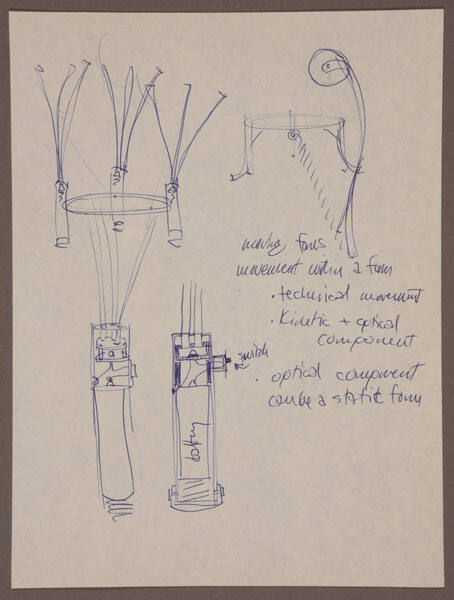 moving fans
movement within a form
• technical movement
• Kinetic + optical
component
• optical component
can be a static form
switch
battery